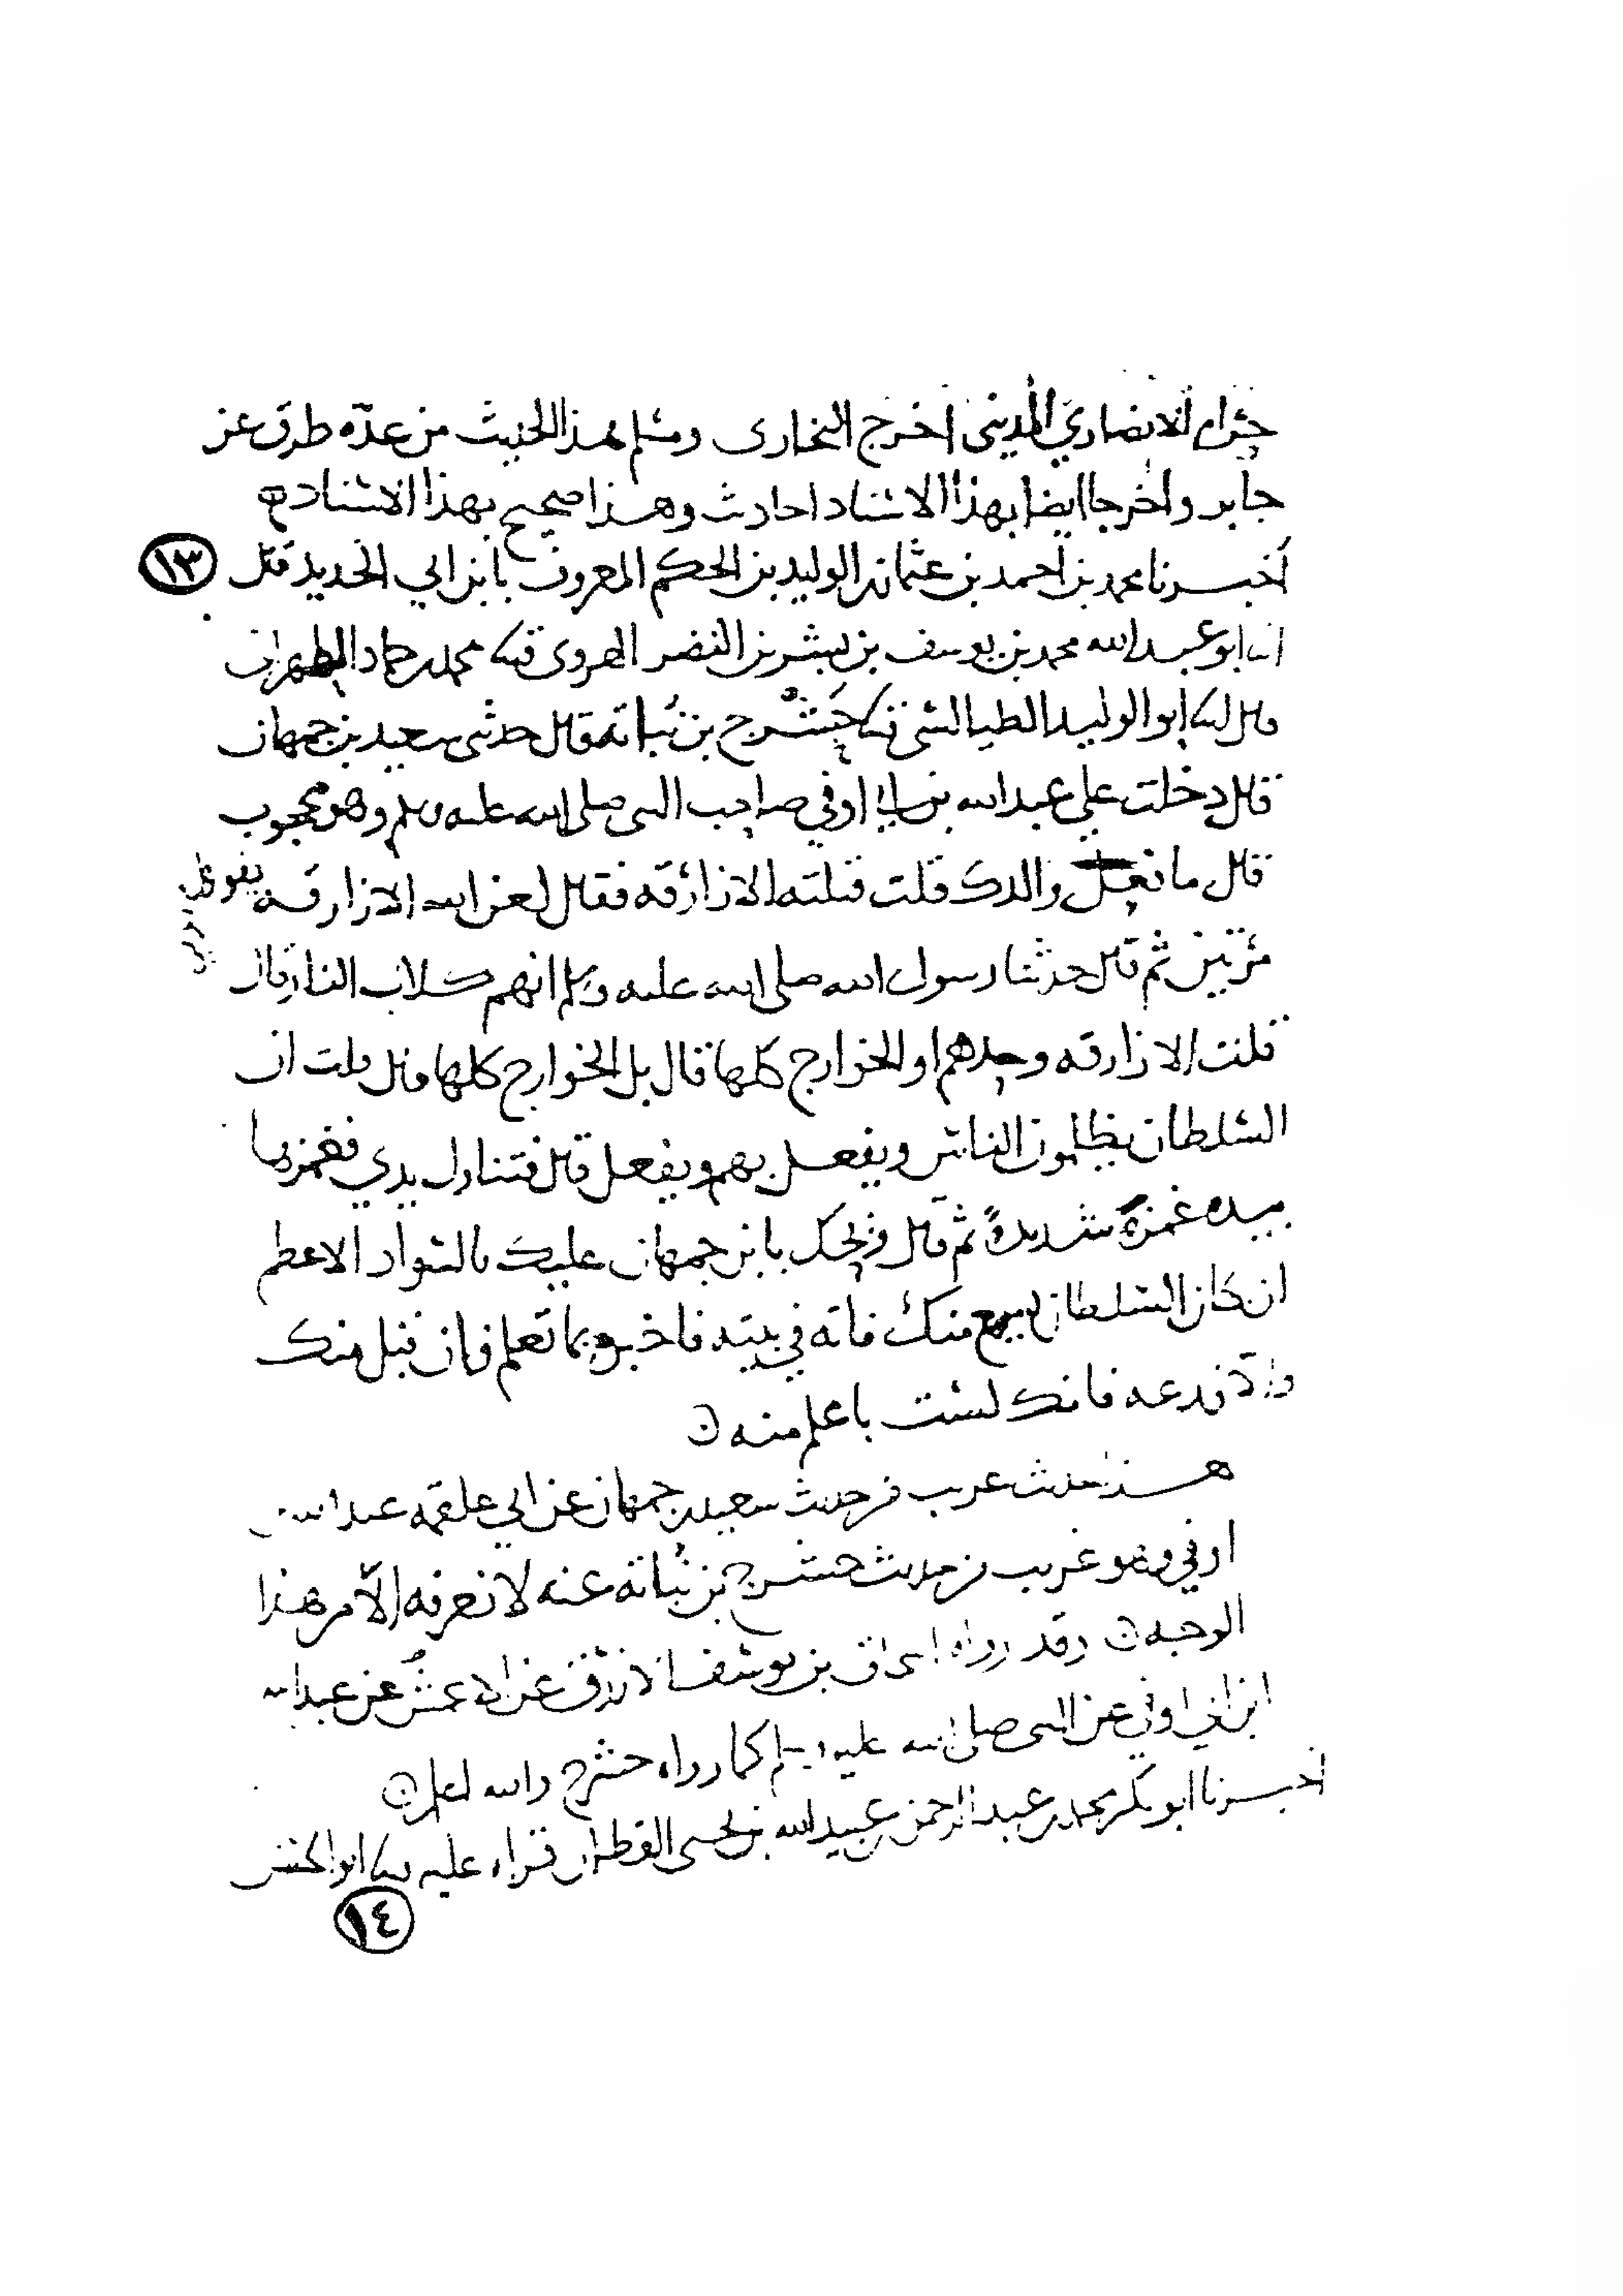 حرام الانصاري المديني اخرج البخارى ومسلم هذا الحديث من عدّه طرق عن
جابر واخرجا ايضا بهذا الاسناد احاديث وهذا صحيح بهذا الاسناد
اخبرنا محمد بن احمد بن عثمان بن الوليد بن الحكم المعروف بابن ابي الحديد قال ١٣
انا ابو عبد الله محمد بن يوسف بن بشر بن النضر الهروى ثنا محمد بن حماد الطهراني
قال ثنا ابو الوليد الطيالسي ثنا حَشْرج بن نُباته قال حدثنى سعيد بن جمهان
قال دخلت على عبد الله بن ابي اوفي صاحب النبى صلى الله عليه وسلم وهو محجوب
قال ما فعل والدك قلت قتلته الازارقه فقال لعن الله الازارقه يقولها
مرّتين ثم قال حدثنا رسول الله صلى الله عليه وسلم انهم كلاب النار قال
قلت الازارقه وحدهم او الخوارج كلها قال بل الخوارج كلها قال قلت ان
السلطان يظلمون الناس ويفعل بهم ويفعل قال فتناول يدي فغمزها
بيده غمزةً شديدةً ثم قال ويحك يا بن جمهان عليك بالسواد الاعظم
ان كان السلطان يسمع منك فاته في بيته فاخبره بما تعلم فان قبل منك
والا فدعه فانك لست باعلم منه ن
هذا حديث غريب من حديث سعيد بن جمهان عن ابي علقمه عبد الله بن
اوفي وهو غريب من حديث حشرج بن نُباتة عنه لا نعرفه إلّا من هذا
الوجه ن وقد رواه اسحاق بن يوسف الازرق عن الاعمش عن عبد الله
ابن ابي اوفي عن النبى صلى الله عليه وسلم كما رواه حشرج والله اعلم ن
اخبرنا ابو بكر محمد بن عبد الرحمن بن عبيد الله بن يحيى القطان قراه عليه ثنا ابو الحسن
١٤